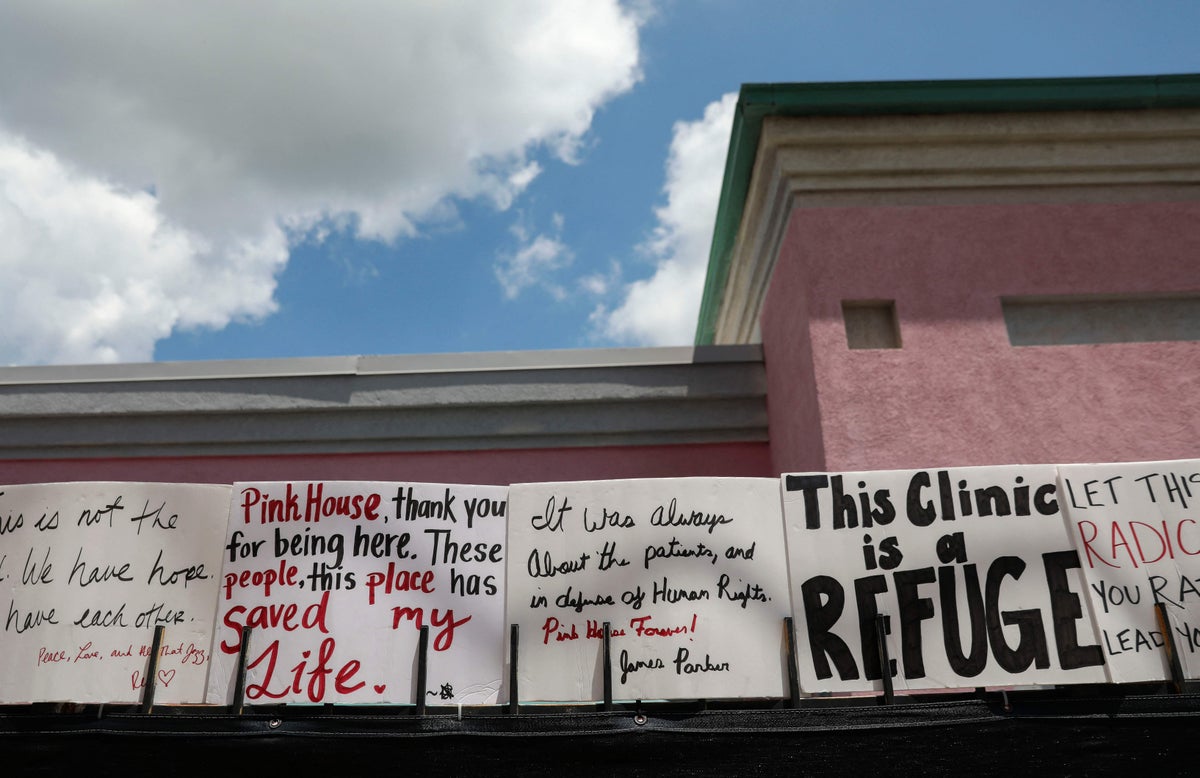 is is not the
. We have hope.
have each other.
Peace, Love, and All That Jazz,
Pink House, thank you
for being here. These
people, this place has
saved my
Life.
It was always
About the patients, and
in defense of Human Rights.
Pink House Forever!
James Parker
This Clinic
is a
REFUGE
LET THIS
RADIC
YOU RA
LEAD YO